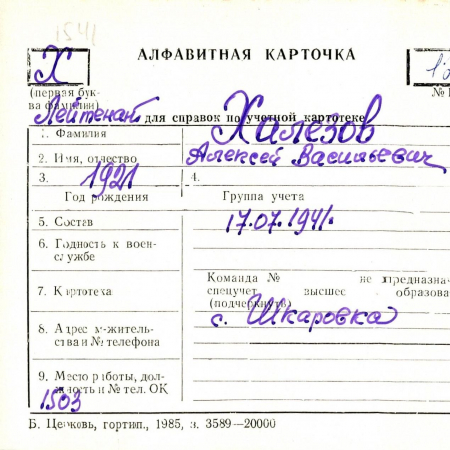 1541
АЛФАВИТНАЯ КАРТОЧКА
Х
(первая бук-
ва фамилии)
Лейтенан.
для справок по учетной картотеке
1. Фамилия Халезов
2. Имя, отчество Алексей Васильевич
3. 1921 4.
Год рождения Группа учета
5. Состав 17.07.1941.
6. Годность к воен-
службе
Команда № не предназна-
7. Картотека спецучет, высшее образова
(подчеркнуть)
с. Шкаровка
8. Адрес м-житель-
ства и № телефона
9. Место работы, дол-
жность и № тел. ОК
1503
Б. Церковь, гортип., 1985, з. 3589—20000